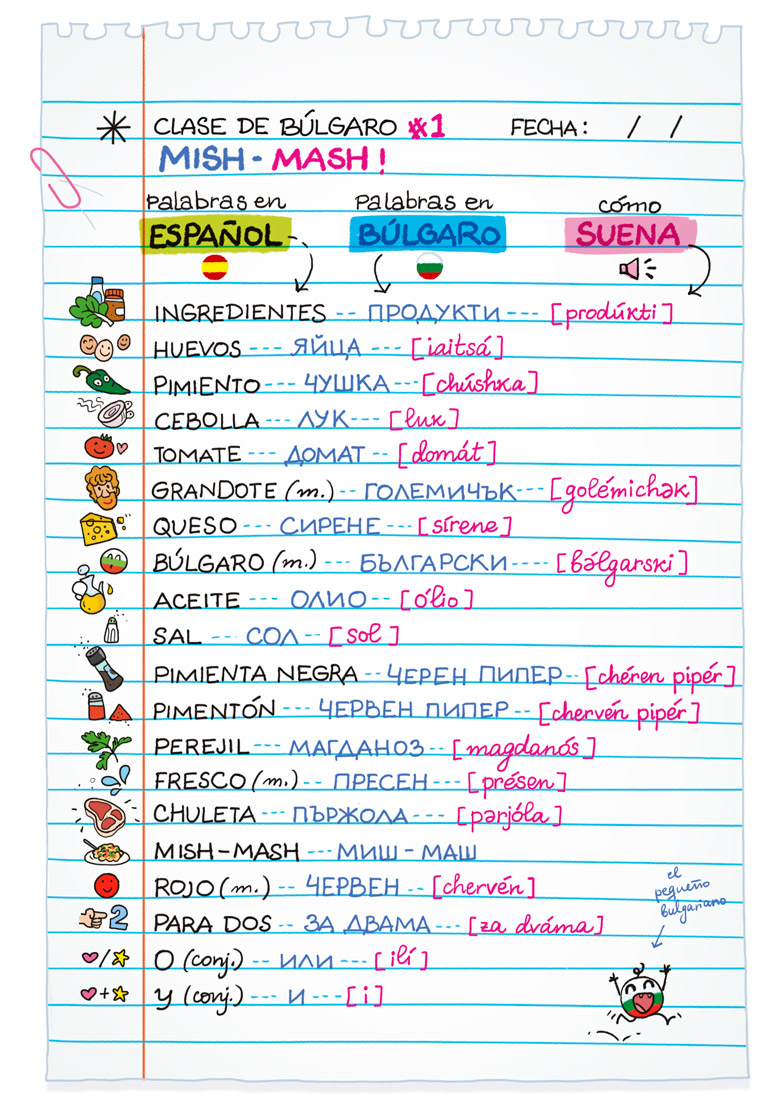 CLASE DE BÚLGARO #1 FECHA: / /
MISH - MASH!
Palabras en Palabras en cómo
ESPAÑOL BÚLGARO SUENA
INGREDIENTES -- ПРОДУКТИ --- [prodúkti]
HUEVOS --- ЯЙЦА --- [iaitsá]
PIMIENTO -- ЧУШКА --- [chúshka]
CEBOLLA --- ЛУК --- [luk]
TOMATE --- ДОМАТ -- [domát]
GRANDOTE (m.) -- ГОЛЕМИЧЪК --- [golémichək]
QUESO --- СИРЕНЕ --- [sírene]
BÚLGARO (m.) --- БЪЛГАРСКИ ---- [bə́lgarski]
ACEITE --- ОЛИО --- [ólio]
SAL --- СОЛ -- [sol]
PIMIENTA NEGRA -- ЧЕРЕН ПИПЕР -- [chéren pipér]
PIMENTÓN --- ЧЕРВЕН ПИПЕР -- [chervén pipér]
PEREJIL --- МАГДАНОЗ -- [magdanós]
FRESCO (m.) -- ПРЕСЕН --- [présen]
CHULETA --- ПЪРЖОЛА --- [pərjóla]
MISH-MASH --- МИШ-МАШ
ROJO (m.) -- ЧЕРВЕН -- [chervén]
PARA DOS -- ЗА ДВАМА --- [za dváma]
O (conj.) -- ИЛИ --- [ilí]
Y (conj.) --- И --- [i]
2
el
pequeño
bulgariano